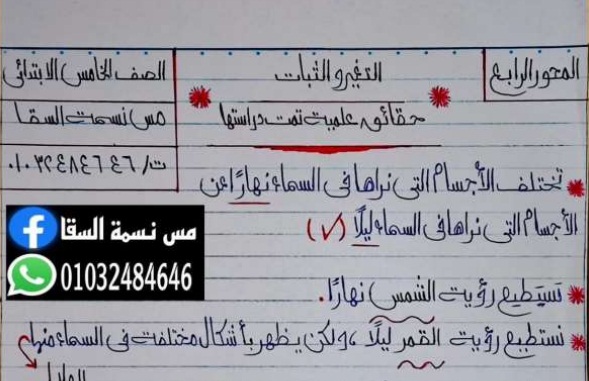 المحور الرابع
التغير والثبات
الصف الخامس الابتدائى
حقائق علمية تمت دراستها
مس نسمة السقا
ت/ ٠١٠٣٢٤٨٤٦٤٦
تختلف الأجسام التى نراها فى السماء نهارًا عن
الأجسام التى نراها فى السماء ليلًا (√)
مس نسمة السقا
01032484646
نستطيع رؤية الشمس نهارًا.
نستطيع رؤية القمر ليلًا ، ولكن يظهر بأشكال مختلفة فى السماء منها
الهلال